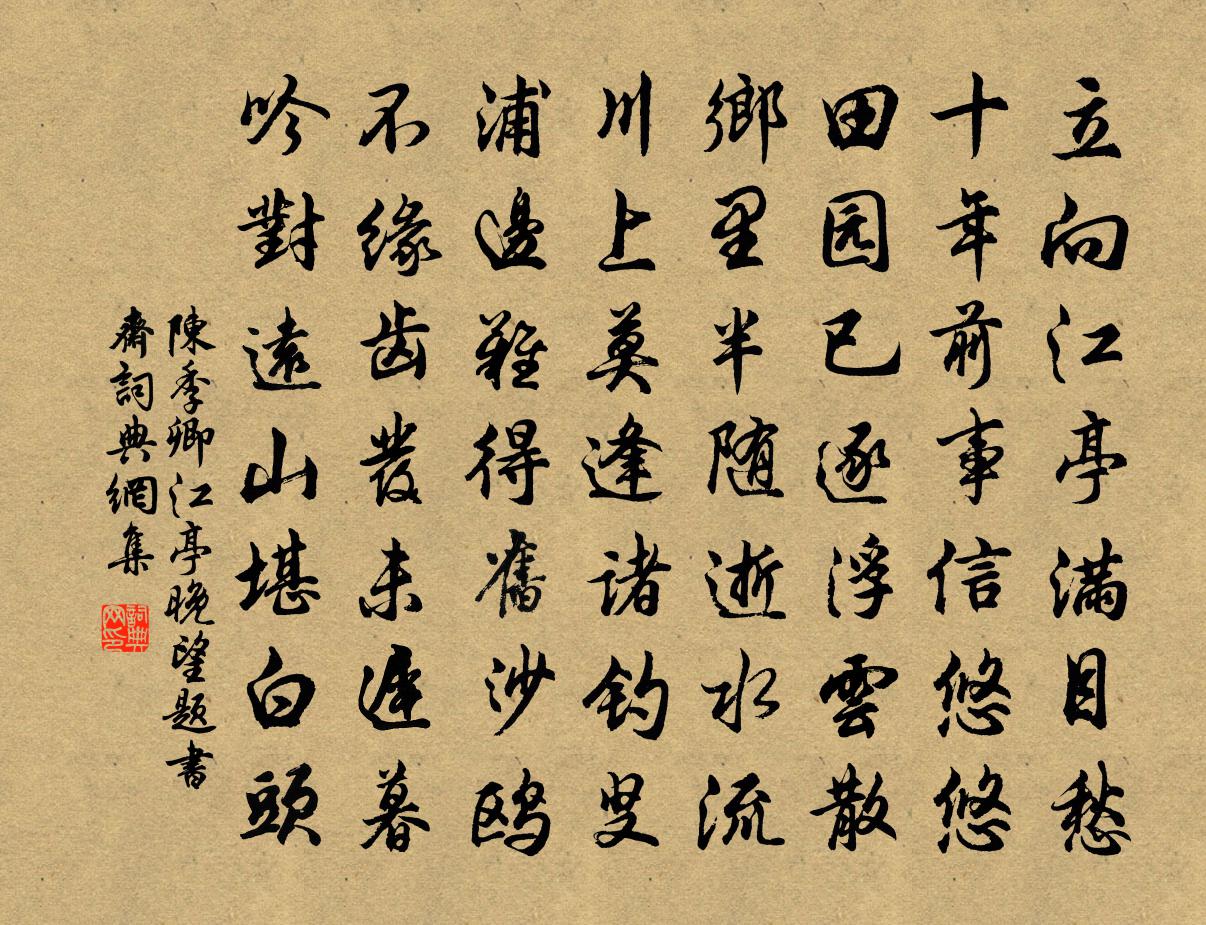 立向江亭滿目愁
十年前事信悠悠
田园已逐浮雲散
鄉里半随逝水流
川上莫逢诸钓叟
浦邊難得舊沙鸥
不缘齿發未遲暮
吟對遠山堪白頭
陳季卿江亭晚望題書
齋詞典網集
詞典
网印